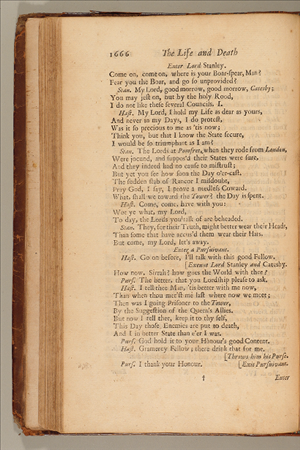 1666 The Life and Death
Enter Lord Stanley.
Come on, come on, where is your Boar-spear, Man?
Fear you the Boar, and go so unprovided?
Stan. My Lord, good morrow, good morrow, Catesby;
You may jest on, but by the holy Rood,
I do not like these several Councils. I.
Hast. My Lord, I hold my Life as dear as yours,
And never in my Days, I do protest,
Was it so precious to me as 'tis now;
Think you, but that I know the State secure,
I would be so triumphant as I am?
Stan. The Lords at Pomfret, when they rode from London,
Were jocund, and suppos'd their States were sure,
And they indeed had no cause to mistrust;
But yet you see how soon the Day o'er-cast.
The sudden stab of Rancor I misdoubt,
Pray God, I say, I prove a needless Coward.
What, shall we toward the Tower? the Day is spent.
Hast. Come, come, have with you:
Wot ye what, my Lord,
To-day, the Lords you talk of are beheaded.
Stan. They, for their Truth, might better wear their Heads,
Than some that have accus'd them wear their Hats.
But come, my Lord, let's away.
Enter a Pursuivant.
Hast. Go on before, I'll talk with this good Fellow.
[Exeunt Lord Stanley and Catesby.
How now, Sirrah? how goes the World with thee?
Purs. The better, that you Lordship please to ask.
Hast. I tell thee Man, 'tis better with me now,
Than when thou met'st me last where now we meet;
Then was I going Prisoner to the Tower,
By the Suggestion of the Queen's Allies.
But now I tell thee, keep it to thy self,
This Day those Enemies are put to death,
And I in better State than e'er I was.
Purs. God hold it to your Honour's good Content.
Hast. Gramercy Fellow; there drink that for me.
[Throws him his Purse.
Purs. I thank your Honour. [Exit Pursuivant.
Enter